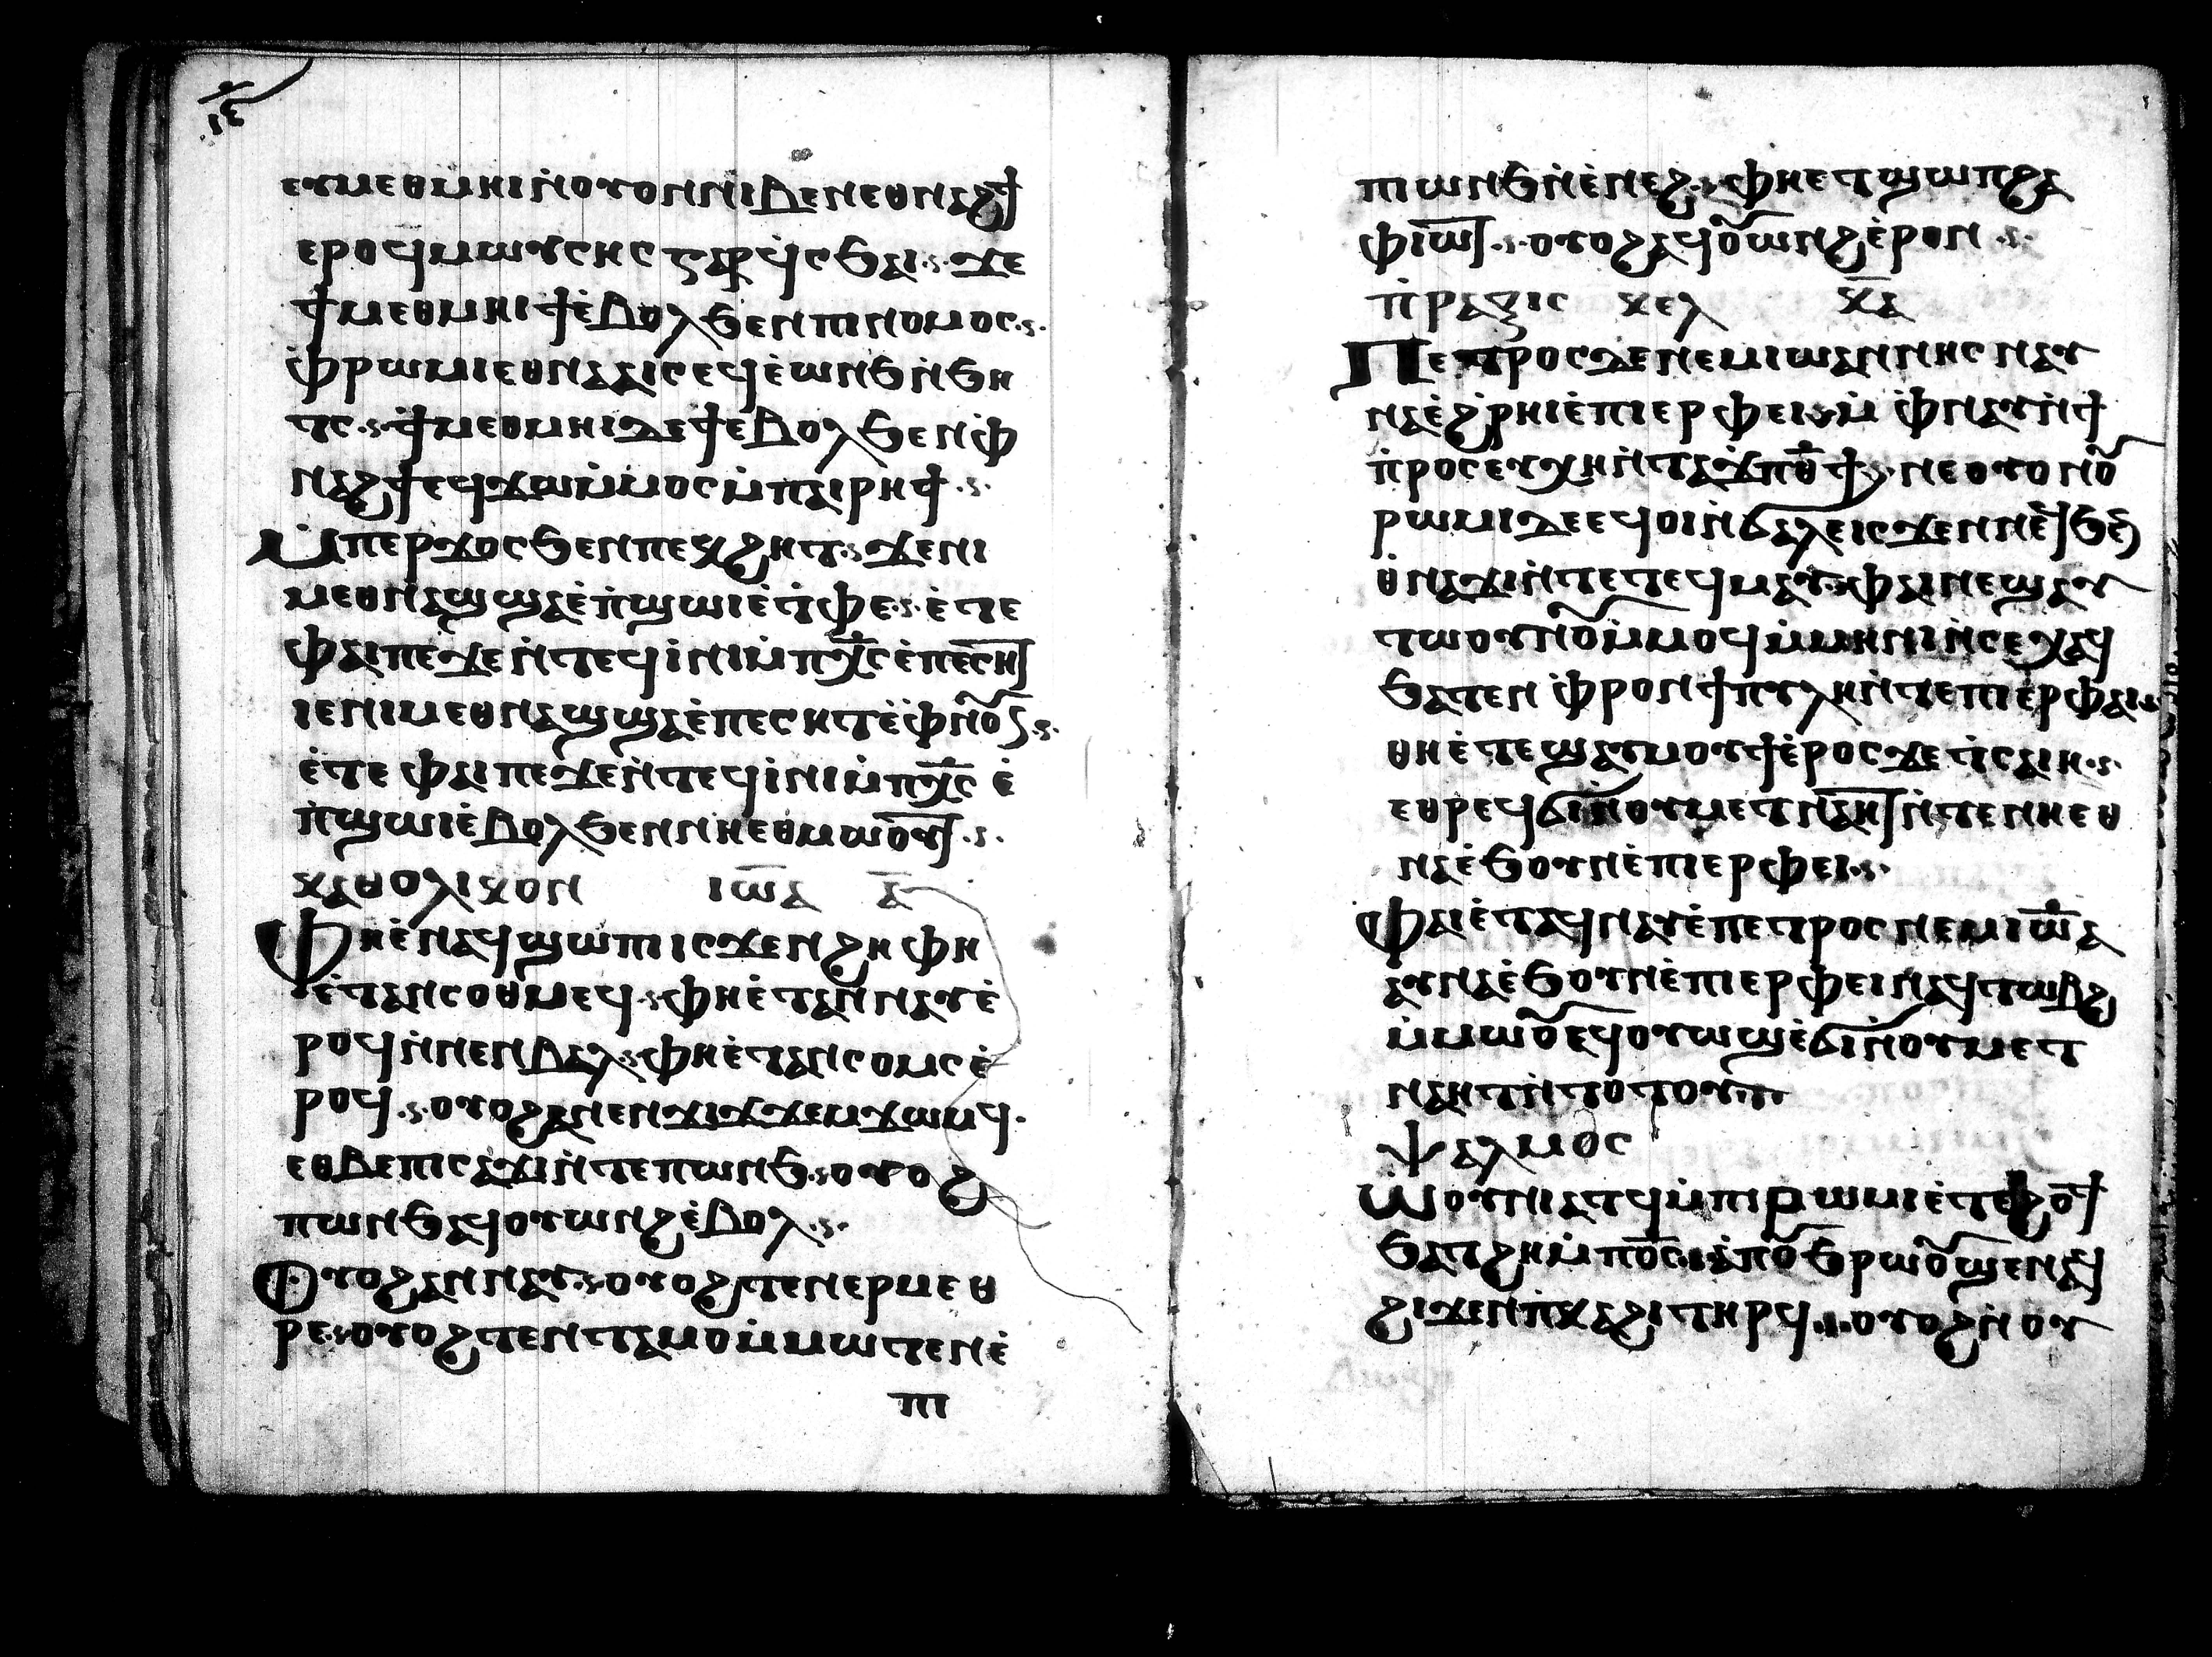 ⲉⲩⲙⲉⲑⲙⲏⲓ ⲛ̀ⲟⲩⲟⲛ ⲛⲓⲃⲉⲛ ⲉⲑⲛⲁϩϯ
ⲉⲣⲟϥ ⲙⲱⲩⲥⲏⲥ ⲅⲁⲣ ϥ̀ⲥϧⲁⲓ ϫⲉ
ϯⲙⲉⲑⲙⲏⲓ ϯⲉ̀ⲃⲟⲗ ϧⲉⲛ ⲡⲓⲛⲟⲙⲟⲥ
ⲫ̀ⲣⲱⲙⲓ ⲉⲑⲛⲁⲁⲓⲥ ⲉϥⲉ̀ⲱⲛϧ ⲛ̀ϧⲏ
ⲧⲥ ϯⲙⲉⲑⲙⲏⲓ ⲇⲉ ϯⲉⲃⲟⲗ ϧⲉⲛ ⲫ̀
ⲛⲁϩϯ ⲉϥϫⲱ ⲙ̀ⲙⲟⲥ ⲙ̀ⲡⲁⲓⲣⲏϯ
ⲙ̀ⲡⲉⲣϫⲟⲥ ϧⲉⲛ ⲡⲉⲕϩⲏⲧ ϫⲉ ⲛⲓ
ⲙ ⲉⲑⲛⲁϣ ϣⲁ ⲉ̀ⲡ̀ϣⲱⲓ ⲉ̀ⲧ̀ⲫⲉ ⲉ̀ⲧⲉ
ⲫⲁⲓ ⲡⲉ ϫⲉ ⲛ̀ⲧⲉϥⲓ̀ⲛⲓ ⲙ̀ⲡⲭ̅ⲥ ⲉ̀ⲡⲉⲥⲏⲧ
ⲓⲉ ⲛⲓⲙ ⲉⲑⲛⲁϣ ϣⲁ ⲉ̀ⲡⲉⲥⲏⲧ ⲉ̀ⲫ̀ⲛⲟⲩⲛ
ⲉ̀ⲧⲉ ⲫⲁⲓ ⲡⲉ ϫⲉ ⲛ̀ⲧⲉϥⲓ̀ⲛⲓ ⲙ̀ⲡⲭ̅ⲥ ⲉ̀
ⲡ̀ϣⲱⲓ ⲉ̀ⲃⲟⲗ ϧⲉⲛ ⲛⲏⲉⲑⲙⲱⲟⲩⲧ
ⲕⲁⲑⲟⲗⲓⲕⲟⲛ ⲓⲱ̅ⲁ ⲁ̅
ⲫⲏⲉ̀ⲛⲁϥϣⲱⲡ ⲓⲥϫⲉⲛ ϩⲏ ⲫⲏ
ⲉ̀ⲧⲁⲛⲥⲟⲑⲙⲉϥ ⲫⲏⲉ̀ⲧⲁⲛⲛⲁⲩ ⲉ̀
ⲣⲟϥ ⲛ̀ⲛⲉⲛⲃⲁⲗ ⲫⲏⲉ̀ⲧⲁⲛⲥⲟⲙⲥ ⲉ̀
ⲣⲟϥ ⲟⲩⲟϩ ⲁⲛⲉⲛϫⲓϫ ϫⲉⲙϫⲱⲙϥ
ⲉⲑⲃⲉ ⲡⲓⲥⲁϫⲓ ⲛ̀ⲧⲉ ⲡⲱⲛϧ ⲟⲩⲟϩ
ⲡⲱⲛϧ ⲁϥⲟⲩⲱⲛϩ ⲉ̀ⲃⲟⲗ
ⲟⲩⲟϩ ⲁⲛⲛⲁⲩ ⲟⲩⲟϩ ⲧⲉⲛⲉⲣⲙⲉⲑ
ⲣⲉ ⲟⲩⲟϩ ⲧⲉⲛⲧⲁⲙⲟ ⲙ̀ⲙⲱⲧⲉⲛ ⲉ̀
ⲡⲓ
ⲡⲓⲱⲛϧ ⲛ̀ⲉ̀ⲛⲉϩ ⲫⲏⲉⲧϣⲱⲡ ϩⲁ
ⲫⲓⲱⲧ ⲟⲩⲟϩ ⲁϥⲟⲩⲱⲛϩ ⲉ̀ⲣⲟⲛ
ⲡ̀ⲣⲁⲝⲓⲥ ⲕⲉⲗ ⲕ̅ⲁ̅
ⲡⲉⲧⲣⲟⲥ ⲇⲉ ⲛⲉⲙ ⲓⲱⲁⲛⲛⲏⲥ ⲛⲁⲩ
ⲛⲁ ⲉ̀ϩ̀ⲣⲏⲓ ⲉ̀ⲡⲓⲉⲣⲫⲉⲓ ⲙ̀ⲫ̀ⲛⲁⲩ ⲛ̀ϯ
ⲡ̀ⲣⲟⲥⲉⲩⲭⲏ ⲛ̀ⲧⲁϫⲡ ⲑ̅ϯ ⲛⲉ ⲟⲩⲟⲛ ⲟⲩ
ⲣⲱⲙⲓ ⲇⲉ ⲉϥⲟⲓ ⲛ̀ϭⲁⲗⲉ ⲓⲥϫⲉⲛ ⲛⲉϥϧⲏ
ⲑⲛⲁϫⲓ ⲛ̀ⲧⲉ ⲧⲉϥⲙⲁⲩ ⲫⲁⲓ ⲛⲉϣⲁⲩ
ⲧⲱⲟⲩⲛⲟⲩ ⲙ̀ⲙⲟϥ ⲙ̀ⲙⲏⲛⲓ ⲛ̀ⲥⲉⲭⲁϥ
ϧⲁⲧⲉⲛ ⲫ̀ⲣⲟ ⲛ̀ϯⲡⲩⲗⲏ ⲛ̀ⲧⲉ ⲡⲓⲉⲣⲫⲁⲓ
ⲑⲏⲉ̀ⲧⲉϣⲁⲩⲙⲟⲩϯ ⲉ̀ⲣⲟⲥ ϫⲉ ⲧ̀ⲥⲁⲓⲏ
ⲉⲑⲣⲉϥϭⲓ ⲛ̀ⲟⲩⲙⲉⲧⲛⲁⲏⲧ ⲛ̀ⲧⲉⲛ ⲛⲏⲉⲑ
ⲛⲁ ⲉ̀ϧⲟⲩⲛ ⲉ̀ⲡⲓⲉⲣⲫⲉⲓ
ⲫⲁⲓ ⲉ̀ⲧⲁϥⲛⲁⲩ ⲉ̀ⲡⲉⲧⲣⲟⲥ ⲛⲉⲙ ⲓⲱ̅ⲁ
ⲁⲩⲛⲁ ⲉ̀ϧⲟⲩⲛ ⲉ̀ⲡⲓⲉⲣⲫⲉⲓ ⲛⲁϥⲧⲱⲃϩ
ⲙ̀ⲙⲱⲟⲩ ⲉϥⲟⲩⲱϣ ⲉ̀ϭⲓ ⲛ̀ⲟⲩⲙⲉⲧ
ⲛⲁⲏⲧ ⲛ̀ⲧⲟⲧⲟⲩ
ⲯⲁⲗⲙⲟⲥ
ⲱⲟⲩⲛⲓⲁⲧϥ ⲙ̀ⲡⲓⲣⲱⲙⲓ ⲉ̀ⲧⲉⲣϩⲟϯ
ϧⲁⲧϩⲏ ⲙ̀ⲡⲟ̅ⲥ ⲁ̀ⲡⲟⲩϧⲣⲱⲟⲩ ϣⲉⲛⲁϥ
ϩⲓϫⲉⲛ ⲡ̀ⲕⲁϩⲓ ⲧⲏⲣϥ ⲟⲩⲟϩ ⲛ̀ⲟⲩ